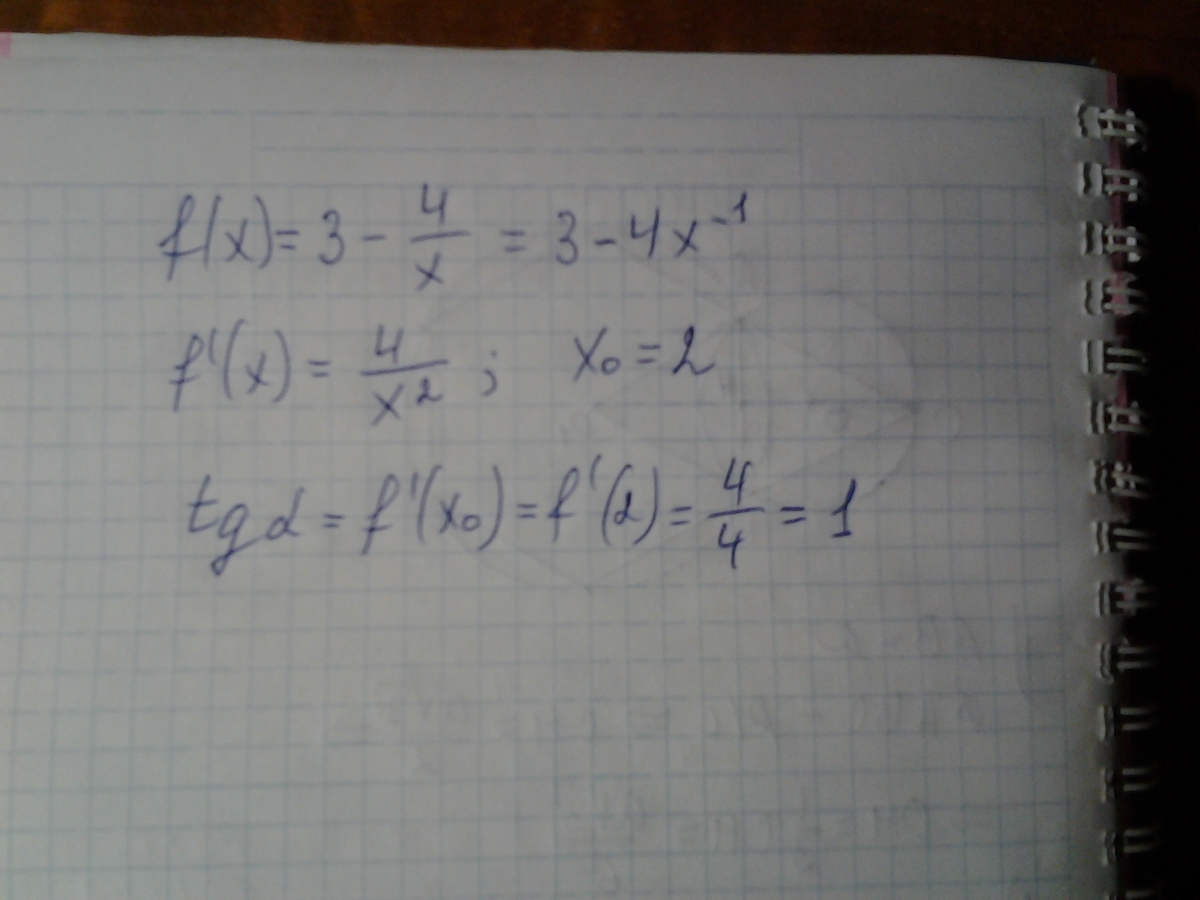 f(x) = 3 - 4/x = 3 - 4x⁻¹
f'(x) = 4/x² ; x₀ = 2
tg α = f'(x₀) = f'(2) = 4/4 = 1